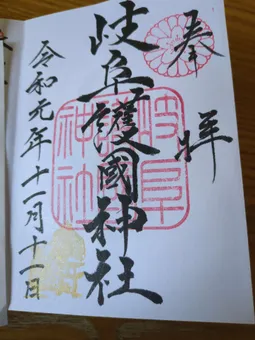 奉拝
岐阜護國神社
令和元年十一月十一日
岐阜
護國
神社